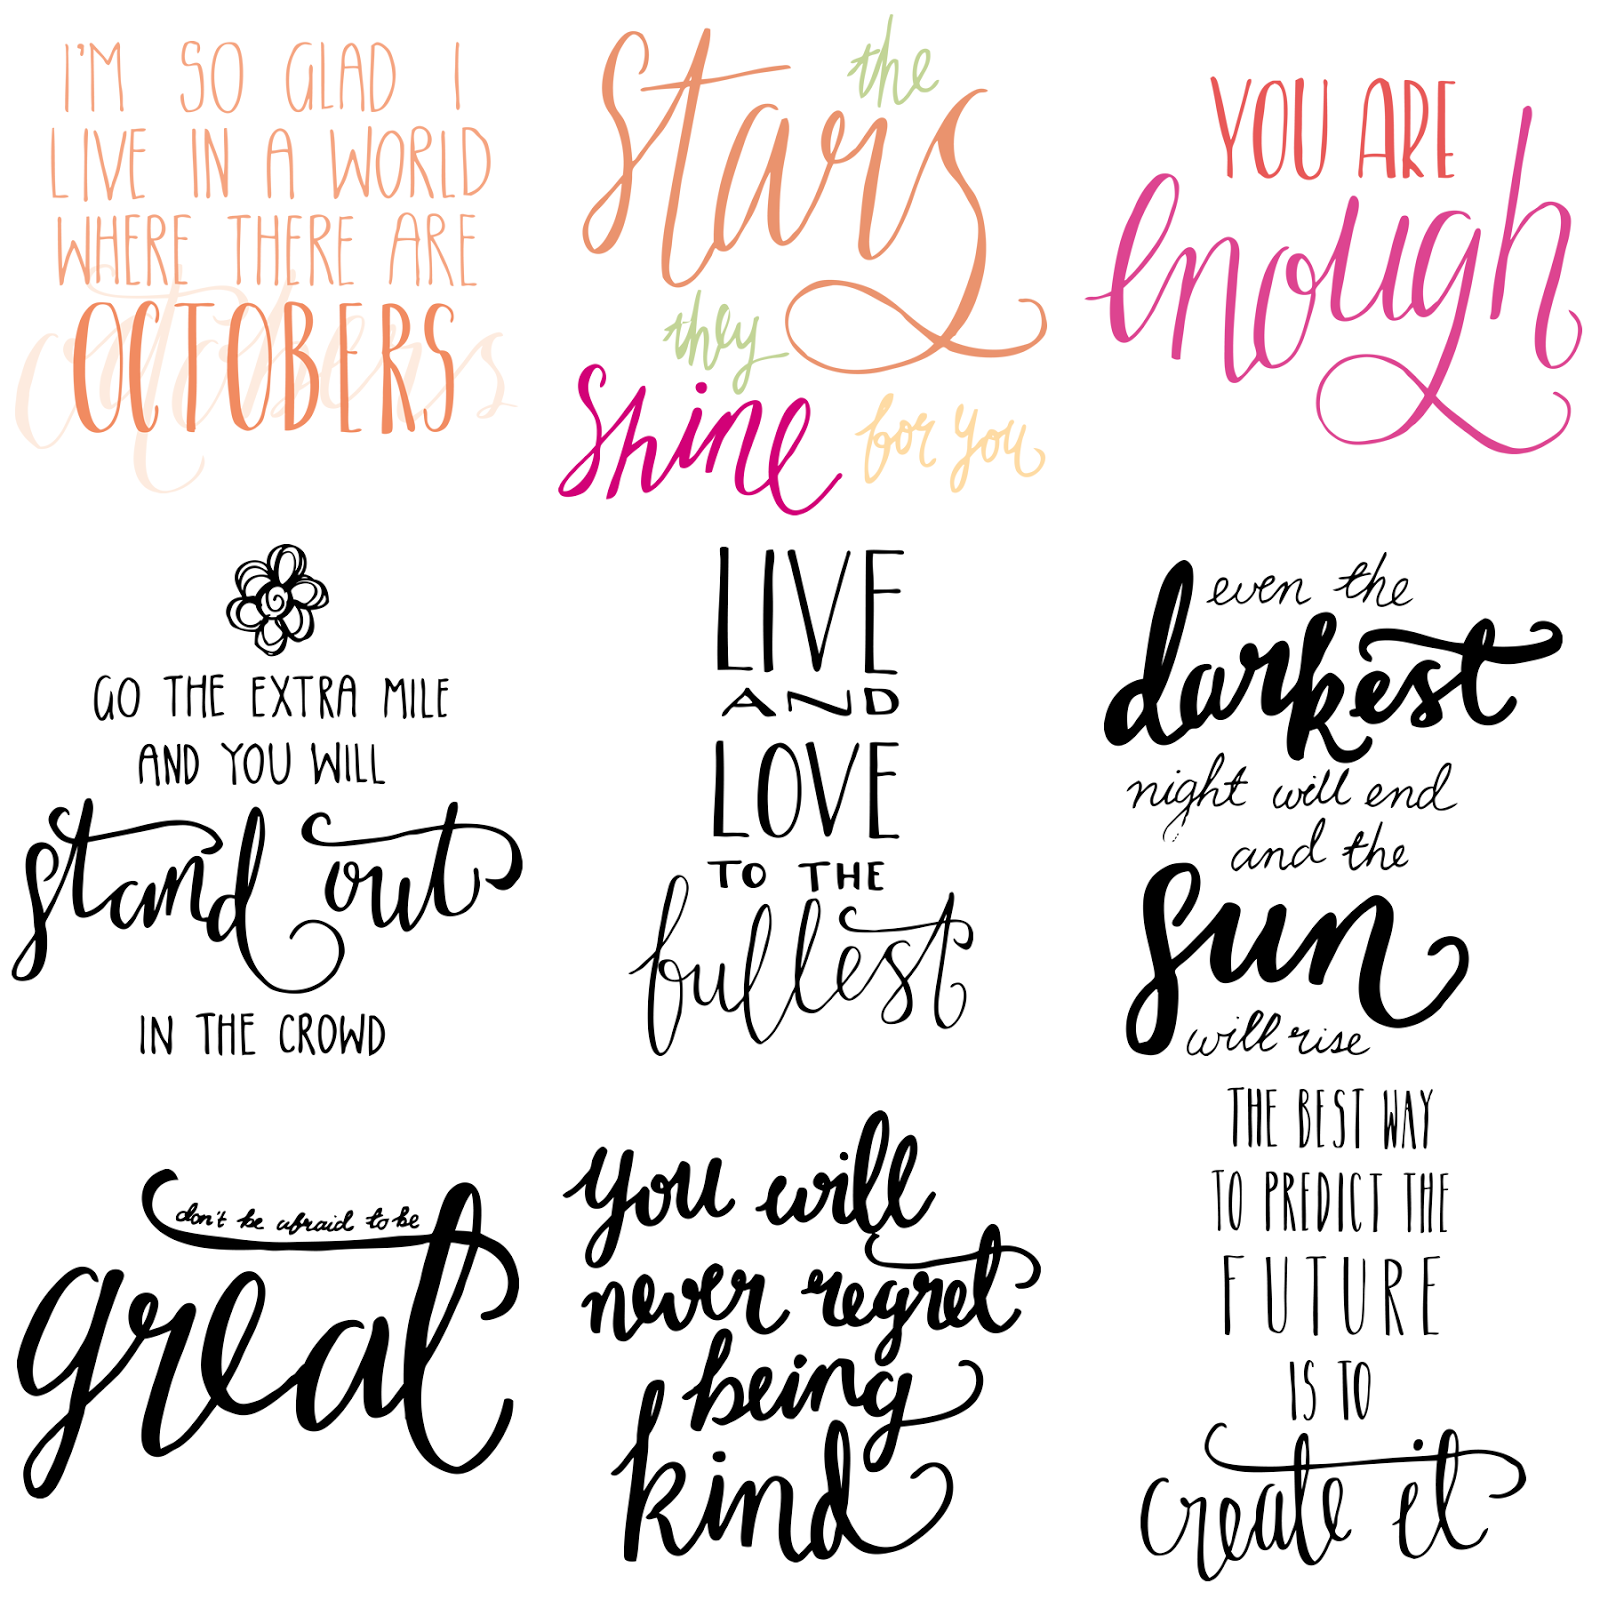 I'M SO GLAD I
LIVE IN A WORLD
WHERE THERE ARE
octobers
OCTOBERS
the
stars
they
shine for you
YOU ARE
enough
GO THE EXTRA MILE
AND YOU WILL
stand out
IN THE CROWD
LIVE
AND
LOVE
TO THE
fullest
even the
darkest
night will end
and the
sun
will rise
don't be afraid to be
great
you will
never regret
being
kind
THE BEST WAY
TO PREDICT THE
FUTURE
IS TO
create it